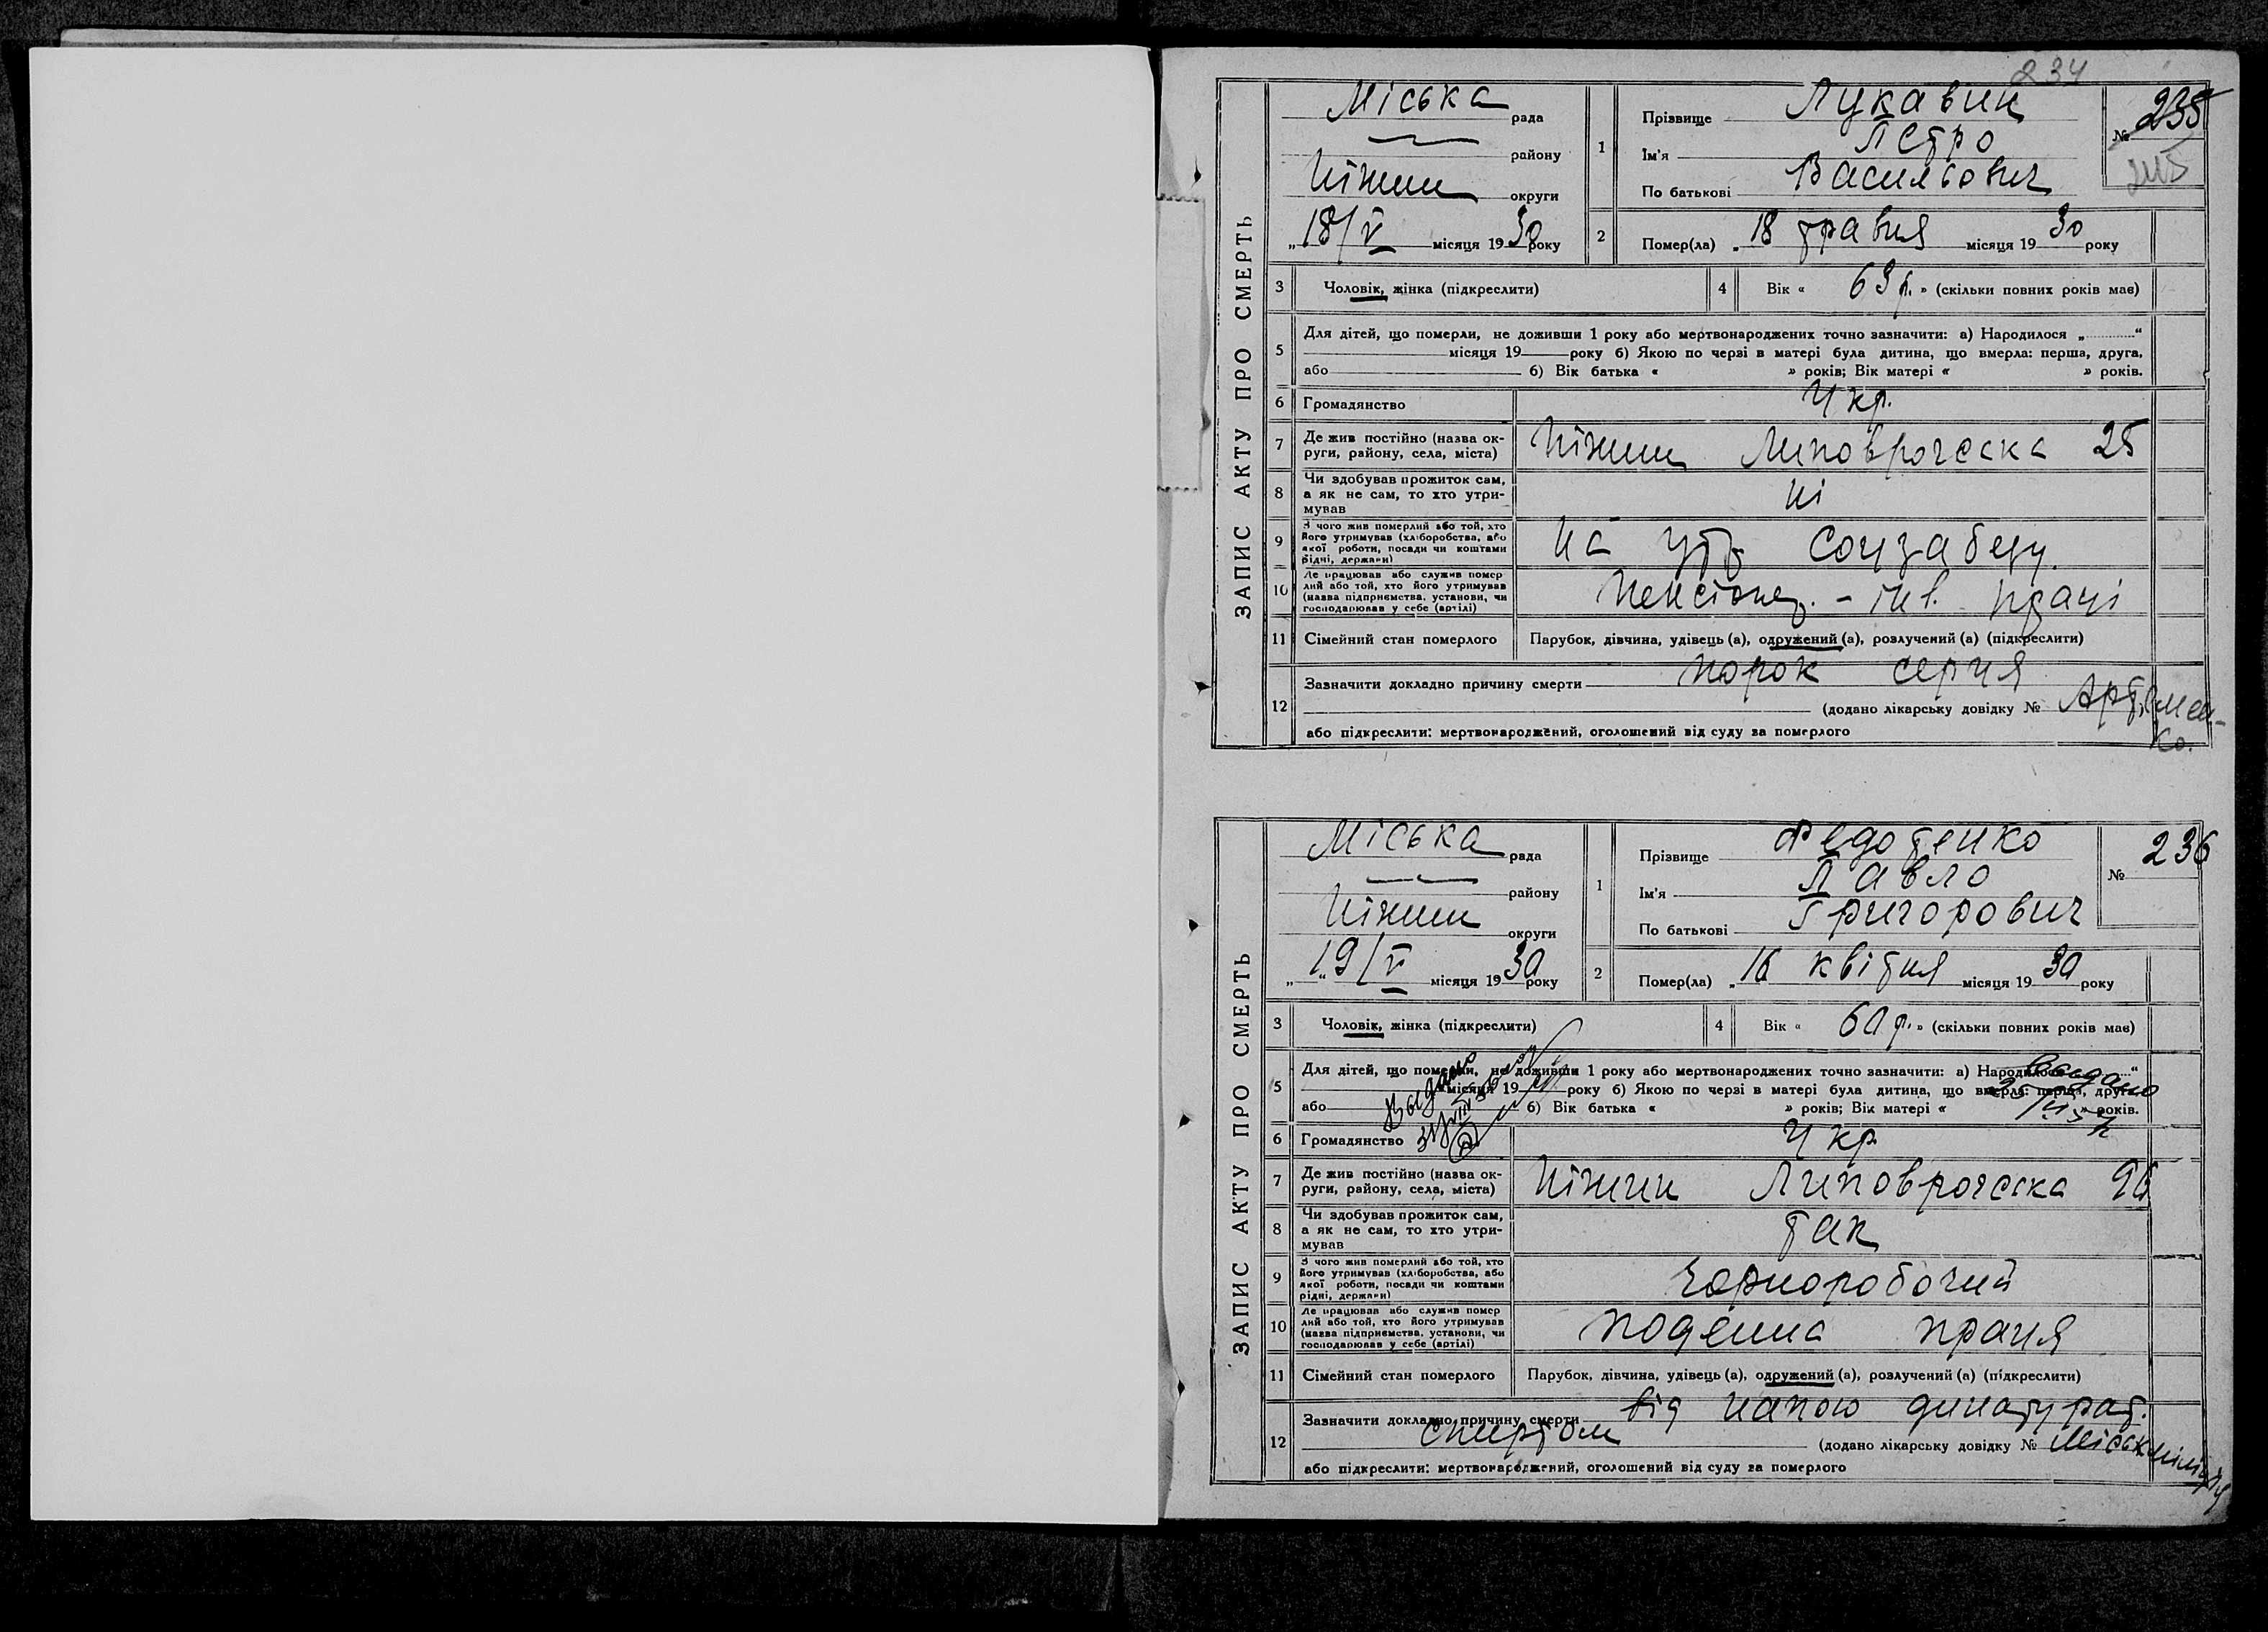 234
ЗАПИС АКТУ ПРО СМЕРТЬ
Міська рада
району
Ніжин округи
„18/V місяця 1930 року
1
Прізвище Лукавин
Ім'я Петро
По батькові Васильович
№ 235
2
Помер(ла) „18 травня місяця 1930 року
3 Чоловік, жінка (підкреслити)
4 Вік « 63 р. » (скільки повних років має)
5 Для дітей, що померли, не доживши 1 року або мертвонароджених точно зазначити: а) Народилося „ “
місяця 19 року б) Якою по черзі в матері була дитина, що вмерла: перша, друга,
або б) Вік батька « » років; Вік матері « » років.
6 Громадянство Укр.
7 Де жив постійно (назва округи, району, села, міста) Ніжин 25
8 Чи здобував прожиток сам,
а як не сам, то хто утри-
мував
ні
9 З чого жив померлий або той, хто
його утримував (хліборобства, або
якої роботи, посади чи коштами
рідні, держави)
на утр. Соцзабезу.
10 Де працював або служив помер
лий або той, хто його утримував
(назва підприємства, установи, чи
господарював у себе (артілі)
Пенсіонер. - інв. праці
11 Сімейний стан померлого Парубок, дівчина, удівець (а), одружений (а), розлучений (а) (підкреслити)
12 Зазначити докладно причину смерти порок серця
(додано лікарську довідку № Артемен-
ко.
або підкреслити: мертвонароджений, оголошений від суду за померлого
ЗАПИС АКТУ ПРО СМЕРТЬ
Міська рада
району
Ніжин округи
„19/V місяця 1930 року
1
Прізвище Федотенко
Ім'я Павло
По батькові Григорович
№ 236
2
Помер(ла) „16 квітня місяця 1930 року
3 Чоловік, жінка (підкреслити)
4 Вік « 60 р. » (скільки повних років має)
5 Для дітей, що померли, не доживши 1 року або мертвонароджених точно зазначити: а) Народилося „ “
місяця 19 року б) Якою по черзі в матері була дитина, що вмерла: перша, друга,
або б) Вік батька « » років; Вік матері « » років.
Выдано
Выдано
6 Громадянство Укр
7 Де жив постійно (назва округи, району, села, міста) Ніжин 96
8 Чи здобував прожиток сам,
а як не сам, то хто утри-
мував
так
9 З чого жив померлий або той, хто
його утримував (хліборобства, або
якої роботи, посади чи коштами
рідні, держави)
Чорноробочий
10 Де працював або служив помер
лий або той, хто його утримував
(назва підприємства, установи, чи
господарював у себе (артілі)
поденна праця
11 Сімейний стан померлого Парубок, дівчина, удівець (а), одружений (а), розлучений (а) (підкреслити)
12 Зазначити докладно причину смерти від напою динатурат.
спиртом (додано лікарську довідку № Міськміліції
або підкреслити: мертвонароджений, оголошений від суду за померлого